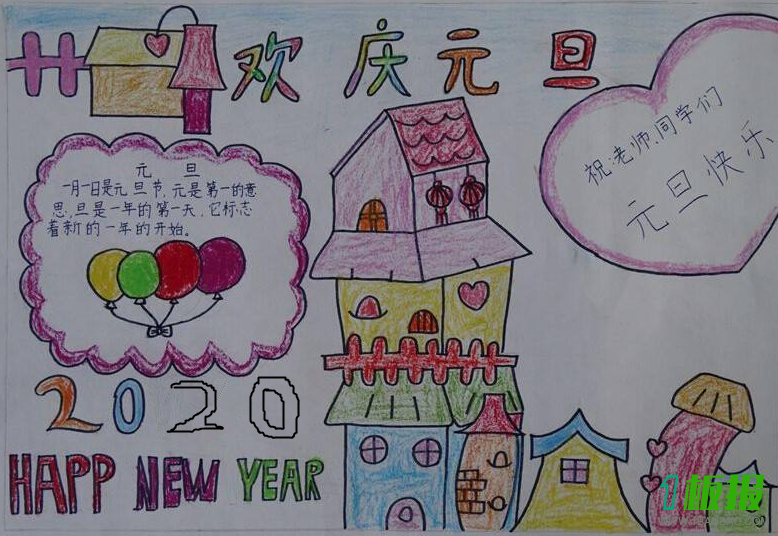 欢庆元旦
祝:老师.同学们
元旦快乐
元 旦
一月一日是元旦节,元是第一的意
思,旦是一年的第一天,它标志
着新的一年的开始。
2020
HAPP NEW YEAR
1板报